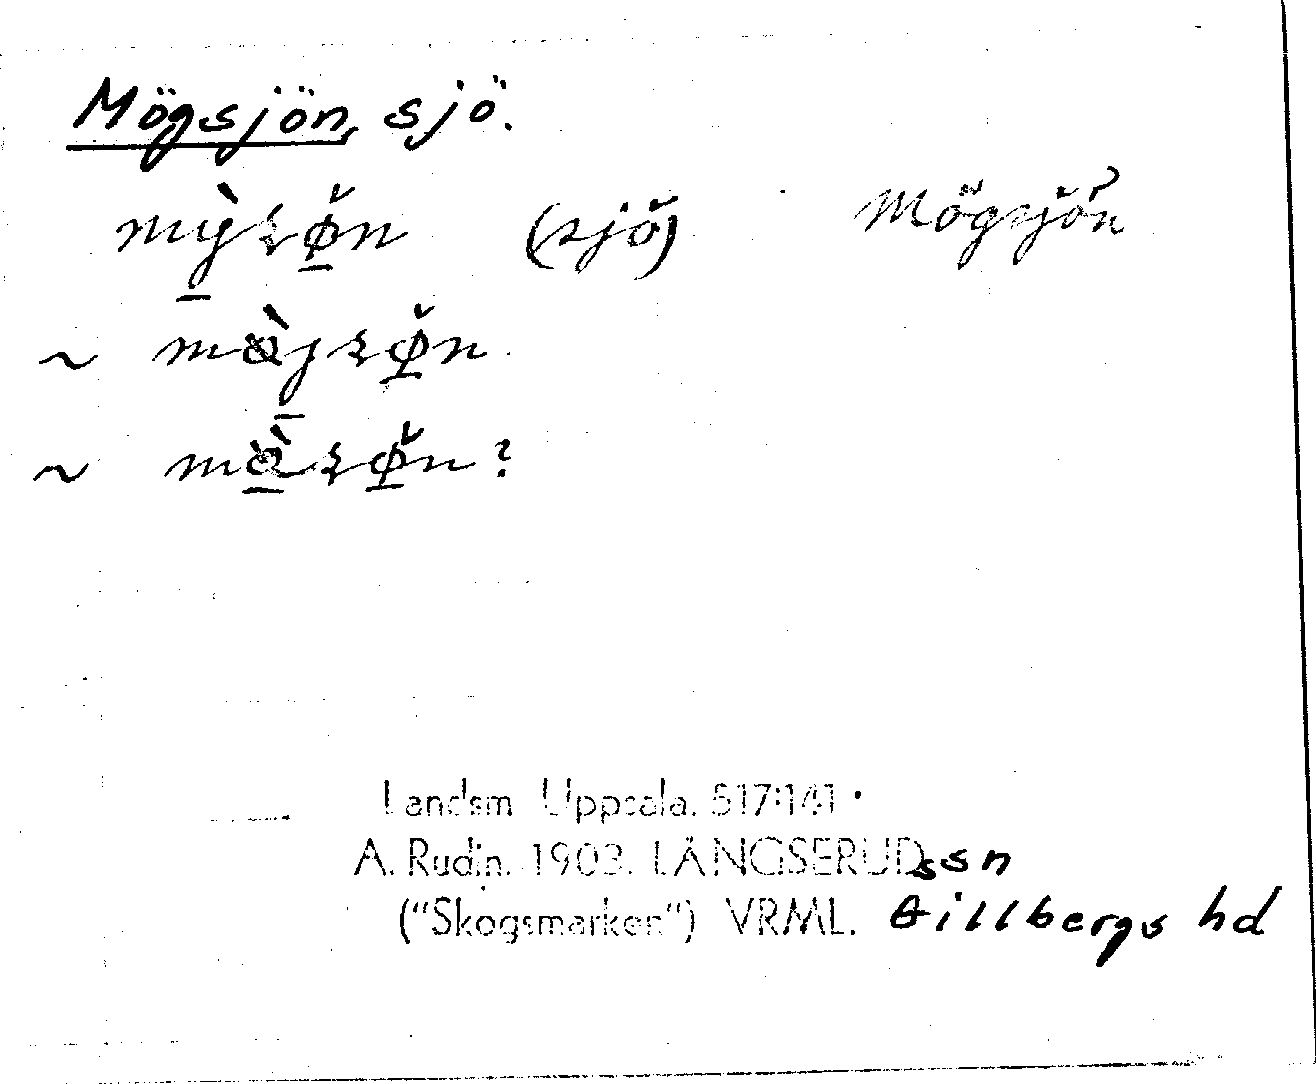 Mögsjön, sjö.
(sjö) Mögsjön
~
~ ?
Landsm. Uppsala. 517:141.
A. Rudin. 1903. LÅNGSERUDs sn
("Skogsmarken") VRML. Gillbergs hd